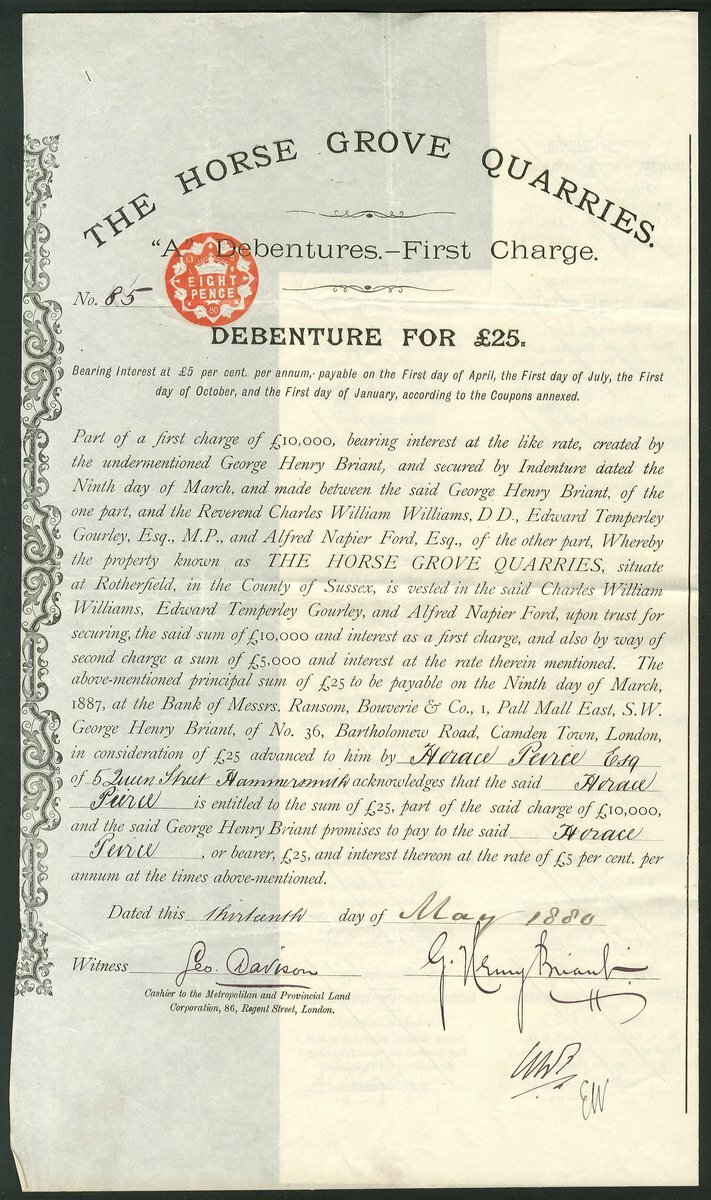 THE HORSE GROVE QUARRIES.
"A" Debentures.–First Charge.
No. 85
13
EIGHT
PENCE
80
DEBENTURE FOR £25.
Bearing Interest at £5 per cent. per annum, payable on the First day of April, the First day of July, the First
day of October, and the First day of January, according to the Coupons annexed.
Part of a first charge of £10,000, bearing interest at the like rate, created by
the undermentioned George Henry Briant, and secured by Indenture dated the
Ninth day of March, and made between the said George Henry Briant, of the
one part, and the Reverend Charles William Williams, D D., Edward Temperley
Gourley, Esq., M.P., and Alfred Napier Ford, Esq., of the other part, Whereby
the property known as THE HORSE GROVE QUARRIES, situate
at Rotherfield, in the County of Sussex, is vested in the said Charles William
Williams, Edward Temperley Gourley, and Alfred Napier Ford, upon trust for
securing, the said sum of £10,000 and interest as a first charge, and also by way of
second charge a sum of £5,000 and interest at the rate therein mentioned. The
above-mentioned principal sum of £25 to be payable on the Ninth day of March,
1887, at the Bank of Messrs. Ransom, Bouverie & Co., 1, Pall Mall East, S.W.
George Henry Briant, of No. 36, Bartholomew Road, Camden Town, London,
in consideration of £25 advanced to him by Horace Peirce Esq
of 5 Queen Street Hammersmith acknowledges that the said Horace
Peirce is entitled to the sum of £25, part of the said charge of £10,000,
and the said George Henry Briant promises to pay to the said Horace
Peirce, or bearer, £25, and interest thereon at the rate of £5 per cent. per
annum at the times above-mentioned.
Dated this thirteenth day of May 1880
Witness Geo. Davison G. Henry Briant
Cashier to the Metropolitan and Provincial Land
Corporation, 86, Regent Street, London.
EW